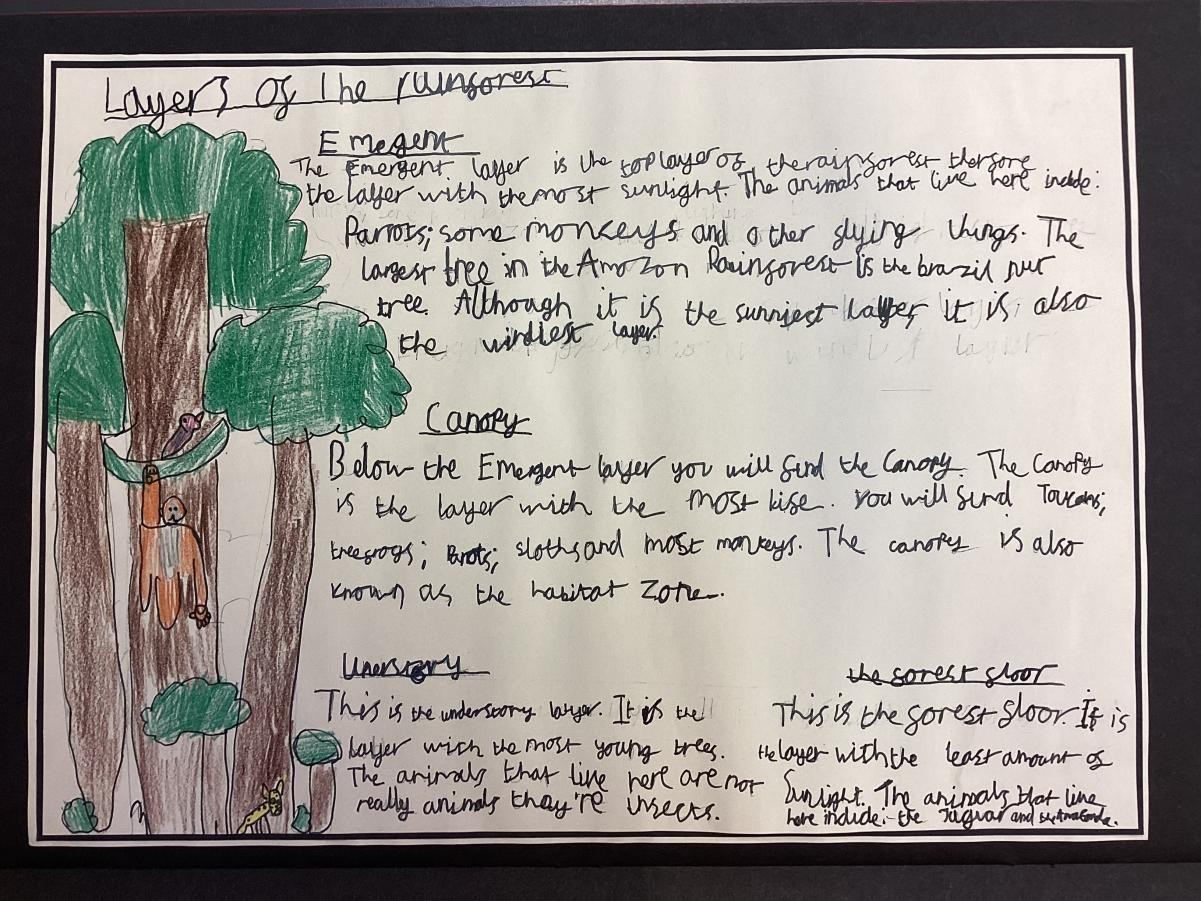 Layers of the rainforest
Emegent
The Emergent layer is the top layer of the rainforest therfore
the layer with the most sunlight. The animals that live here include:
Parrots; some monkeys and other flying things. The
largest tree in the Amazon Rainforest is the brazil nut
tree. Although it is the sunniest layer, it is also
the windiest layer.
Canopy
Below the Emergent layer you will find the Canopy. The Canopy
is the layer with the most life. You will find Toucans;
treefrogs; Parrots; sloths and most monkeys. The canopy is also
known as the habitat zone.
Unerstory
This is the understory layer. It is the
layer with the most young trees.
The animals that live here are not
really animals they're insects.
the forest floor
This is the forest floor. It is
the layer with the least amount of
sunlight. The animals that live
here include: the Jaguar and the Anaconda.